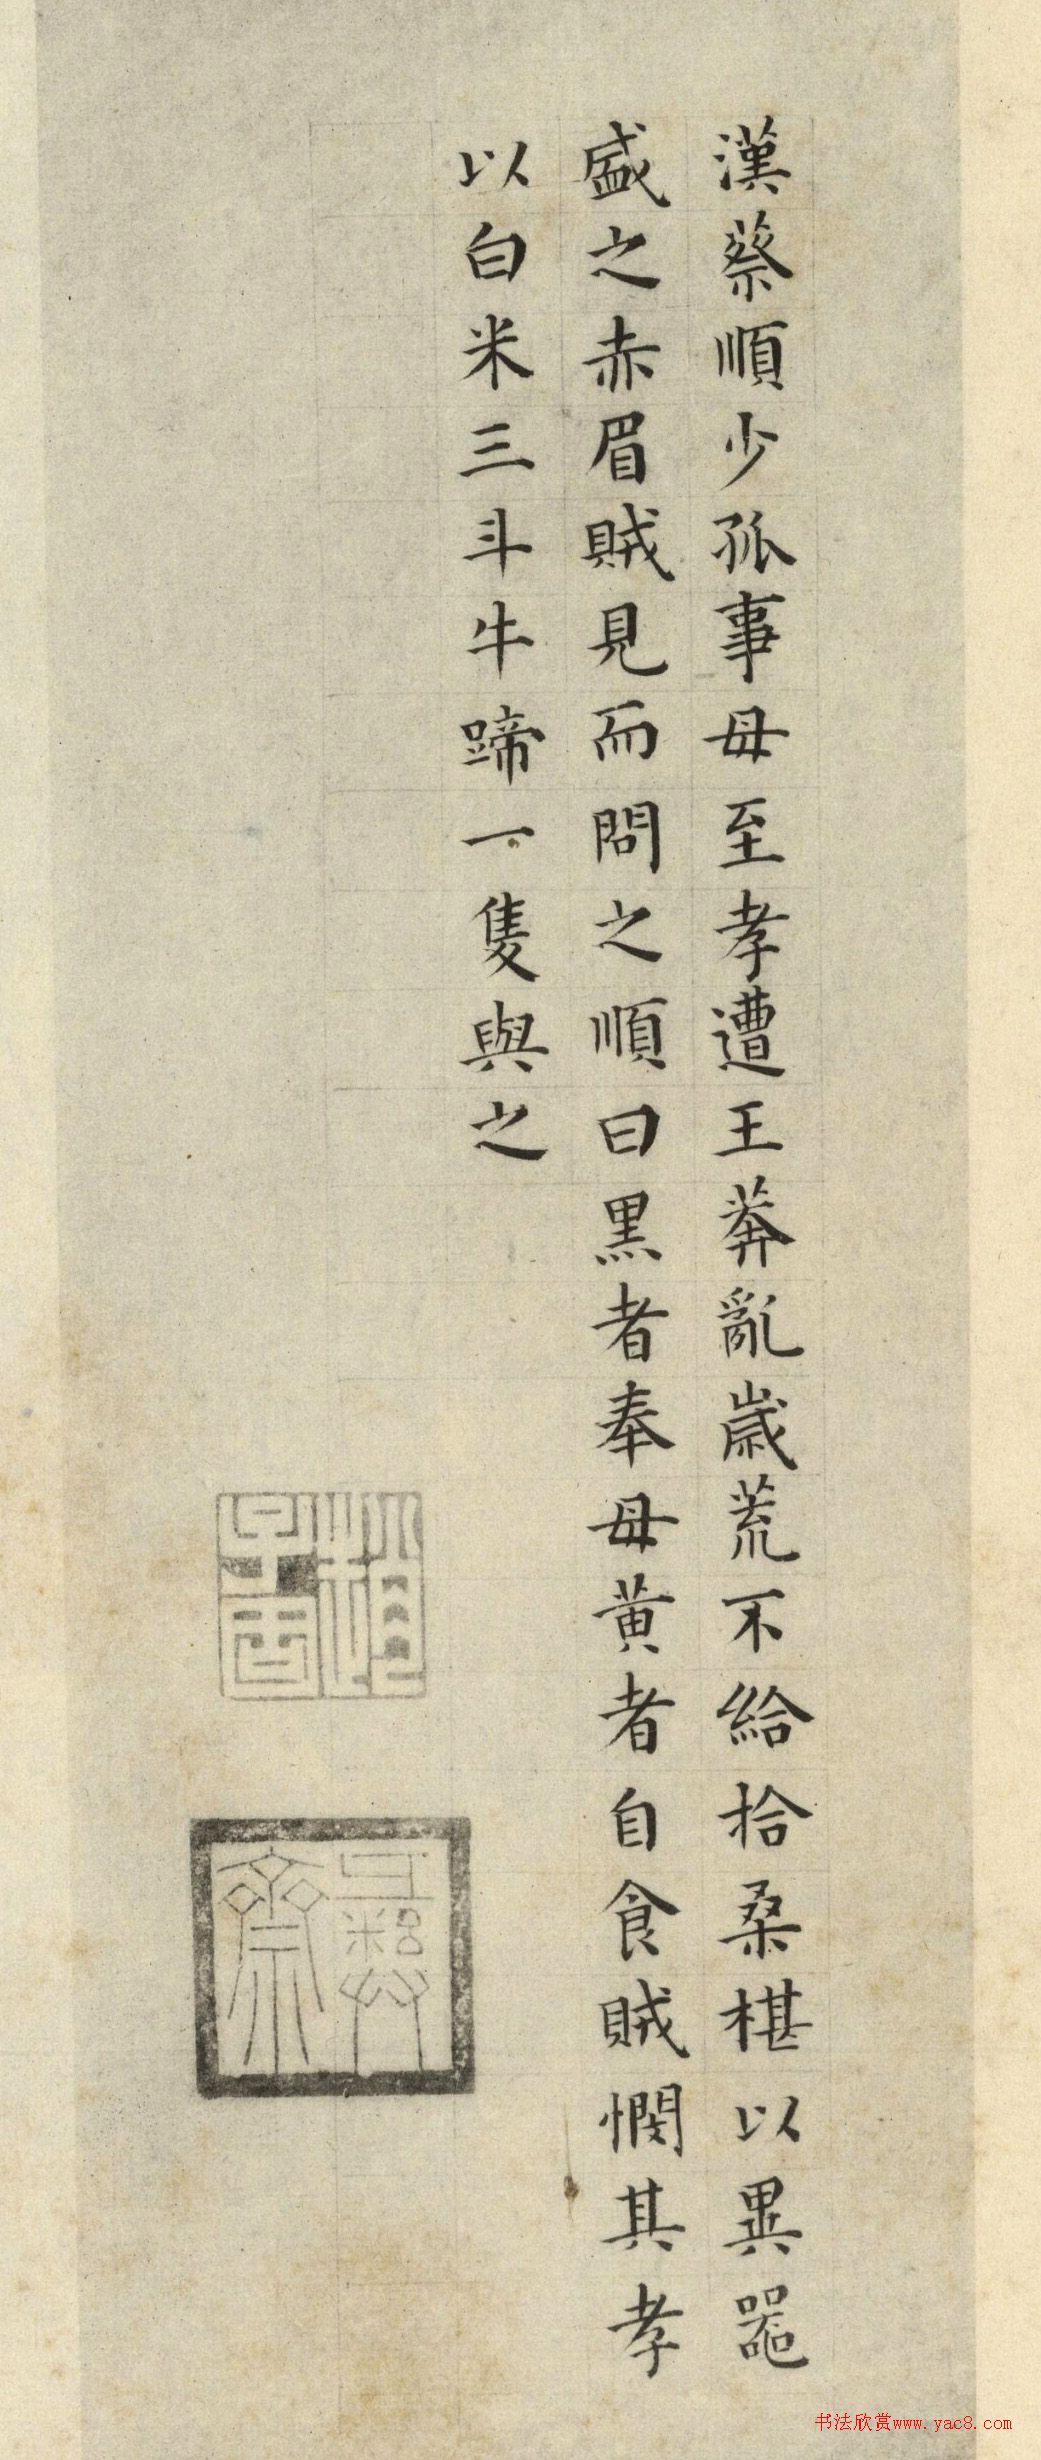 漢蔡順少孤事母至孝遭王莽亂歲荒不給拾桑椹以異器
盛之赤眉賊見而問之順曰黑者奉母黃者自食賊憫其孝
以白米三斗牛蹄一隻與之
书法欣赏www.yac8.com